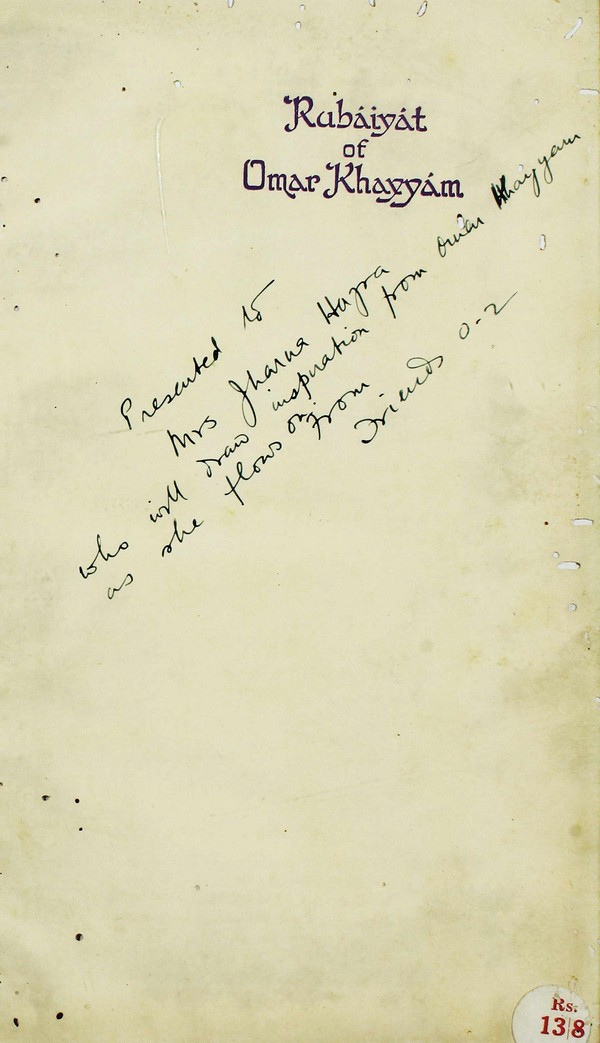 Rubáiyát
of
Omar Khayyám
Presented to
Mrs Jharna Hazra
who will draw inspiration from Omar Khayyam
as she flows on
From
Friends 0-2
Rs.
13/8